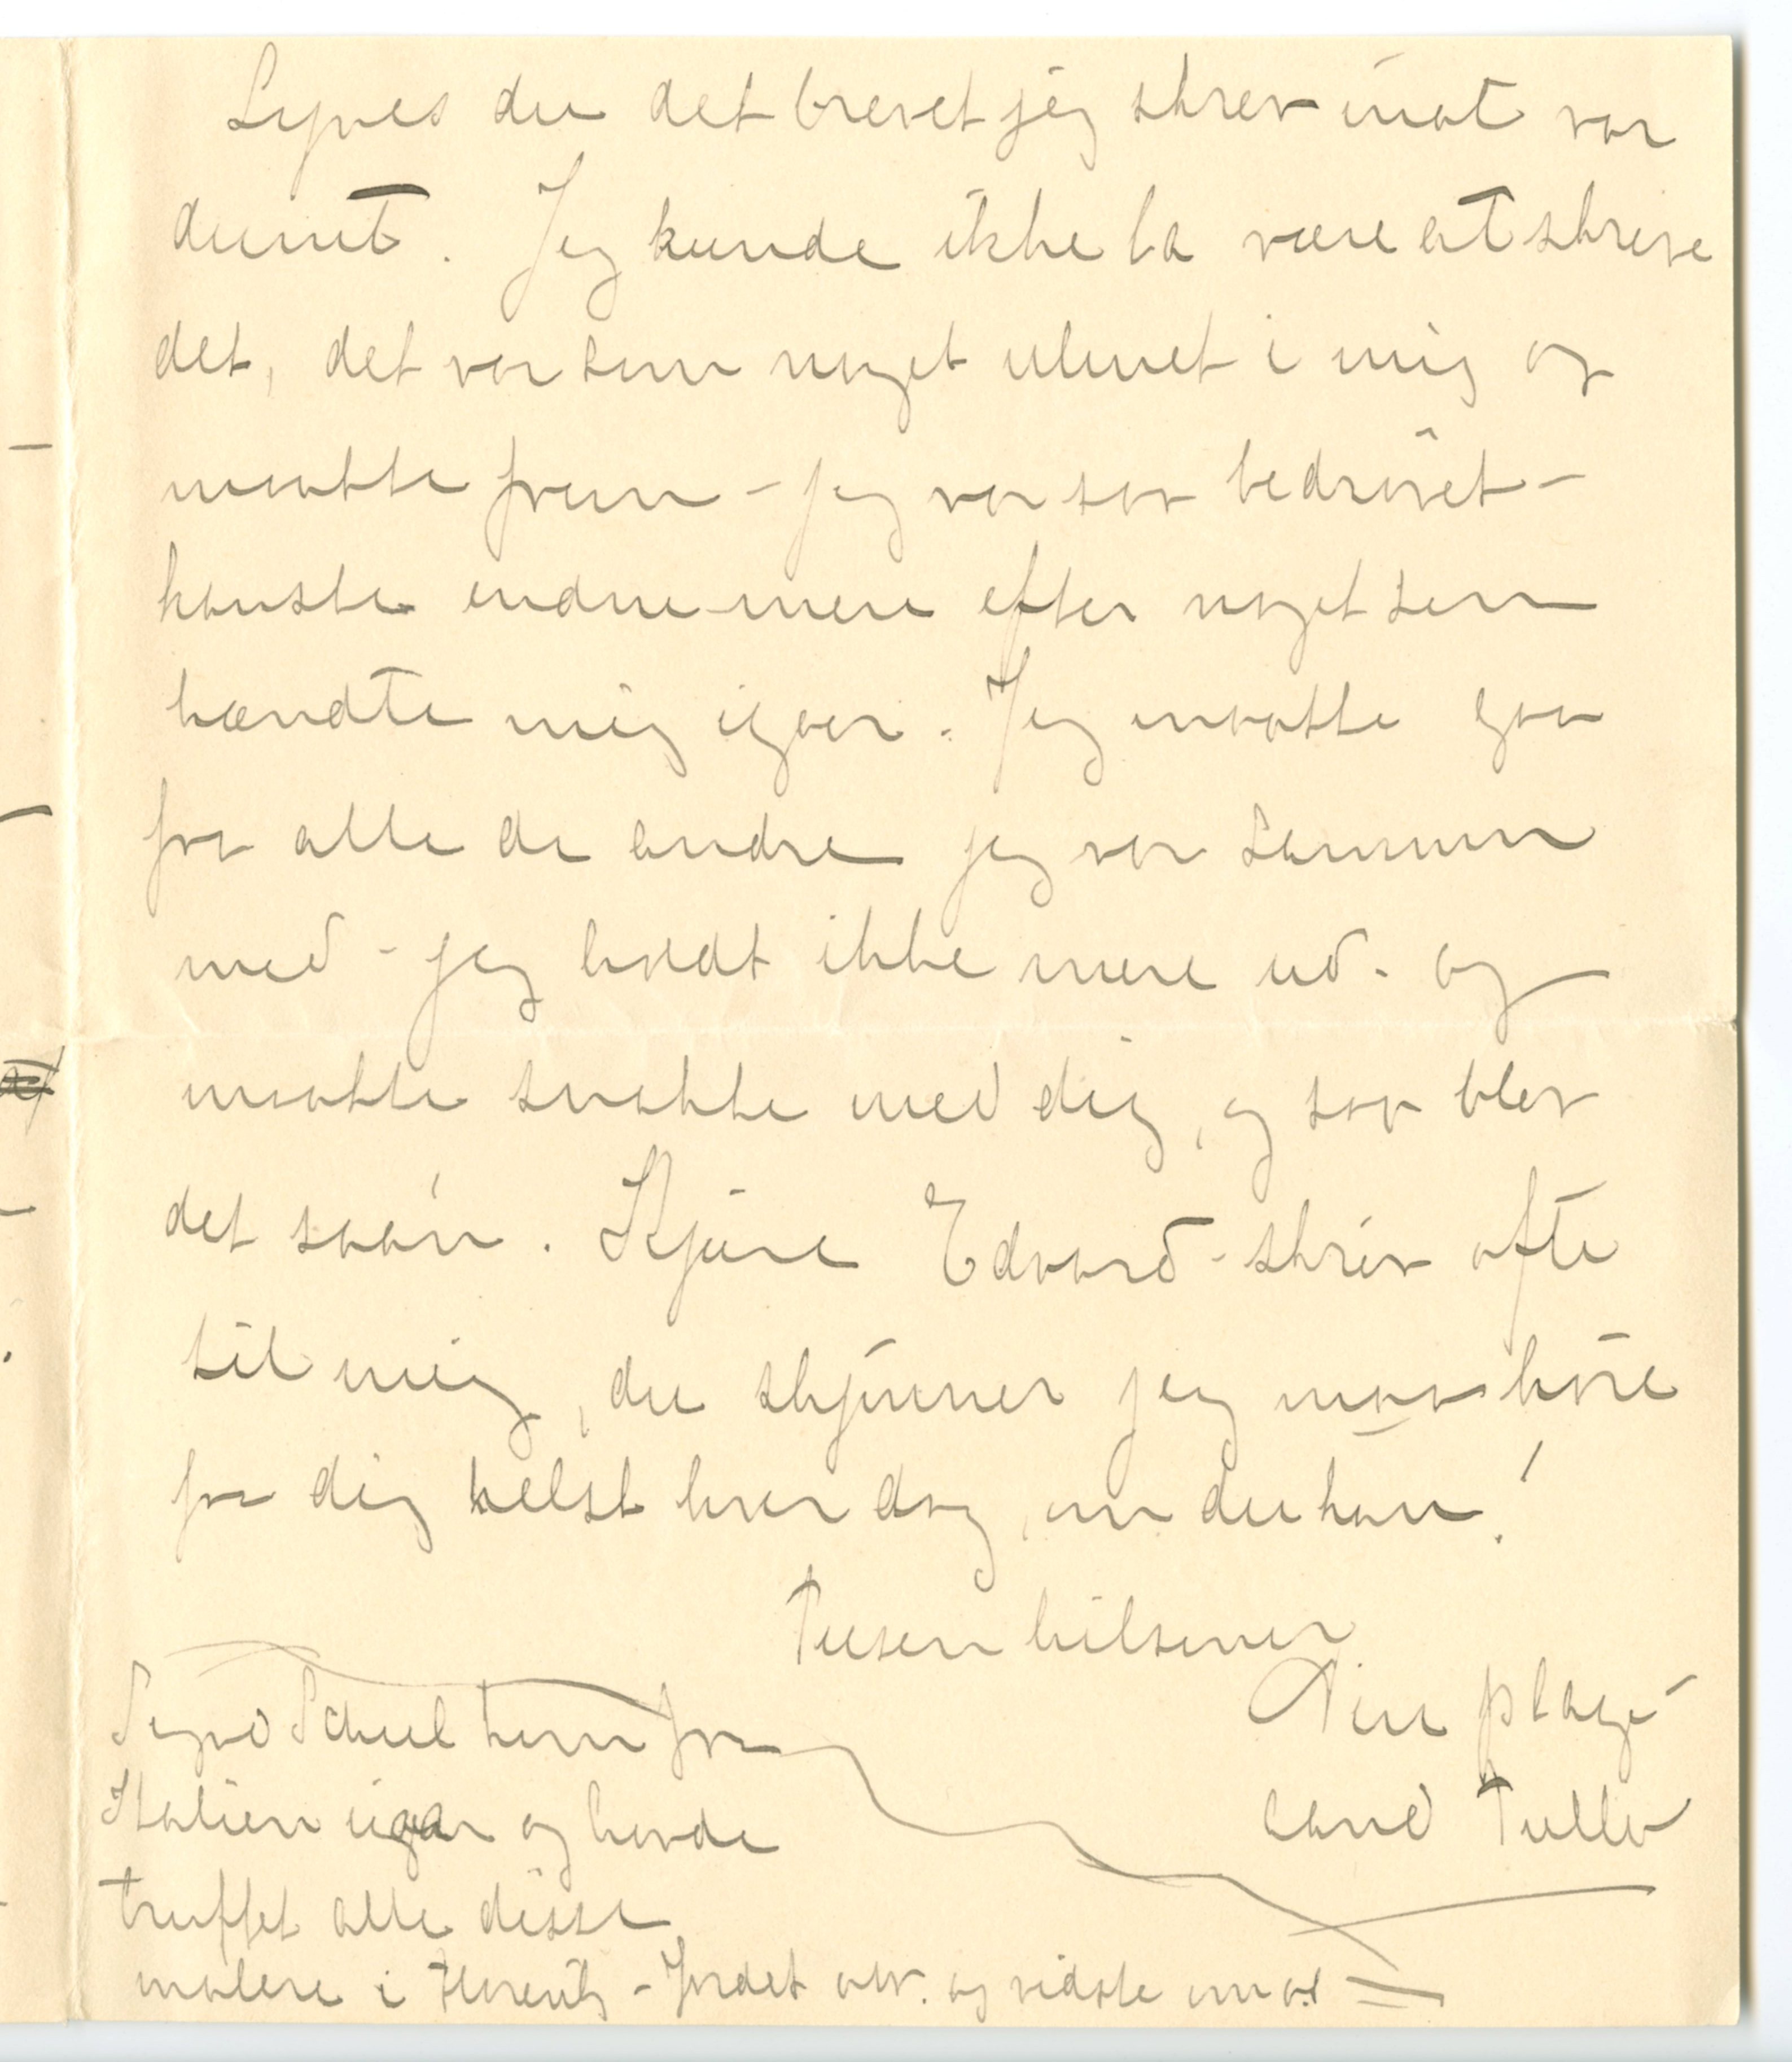 Synes du det brevet jeg skrev inat var
dumt. Jeg kunde ikke la være at skreve
det, det var som noget ulmet i mig og
maatte frem – jeg var saa bedrøvet –
kanske endnu mere efter noget som
hændte mig igaar. Jeg maatte gaa
fra alle de andre jeg var sammen
med – jeg holdt ikke mere ud – og
maatte snakke med dig, og saa blev
det saan. Kjære Edvard – skriv ofte
til mig, du skjønner jeg maa høre
fra dig helst hver dag, om du kan!
Tusen hilsener
Din plage–
aand Tulla
Sigurd   kom fra
Italien igaar og havde
truffet alle disse
malere i Florents – Jordet osv. og vidste om at